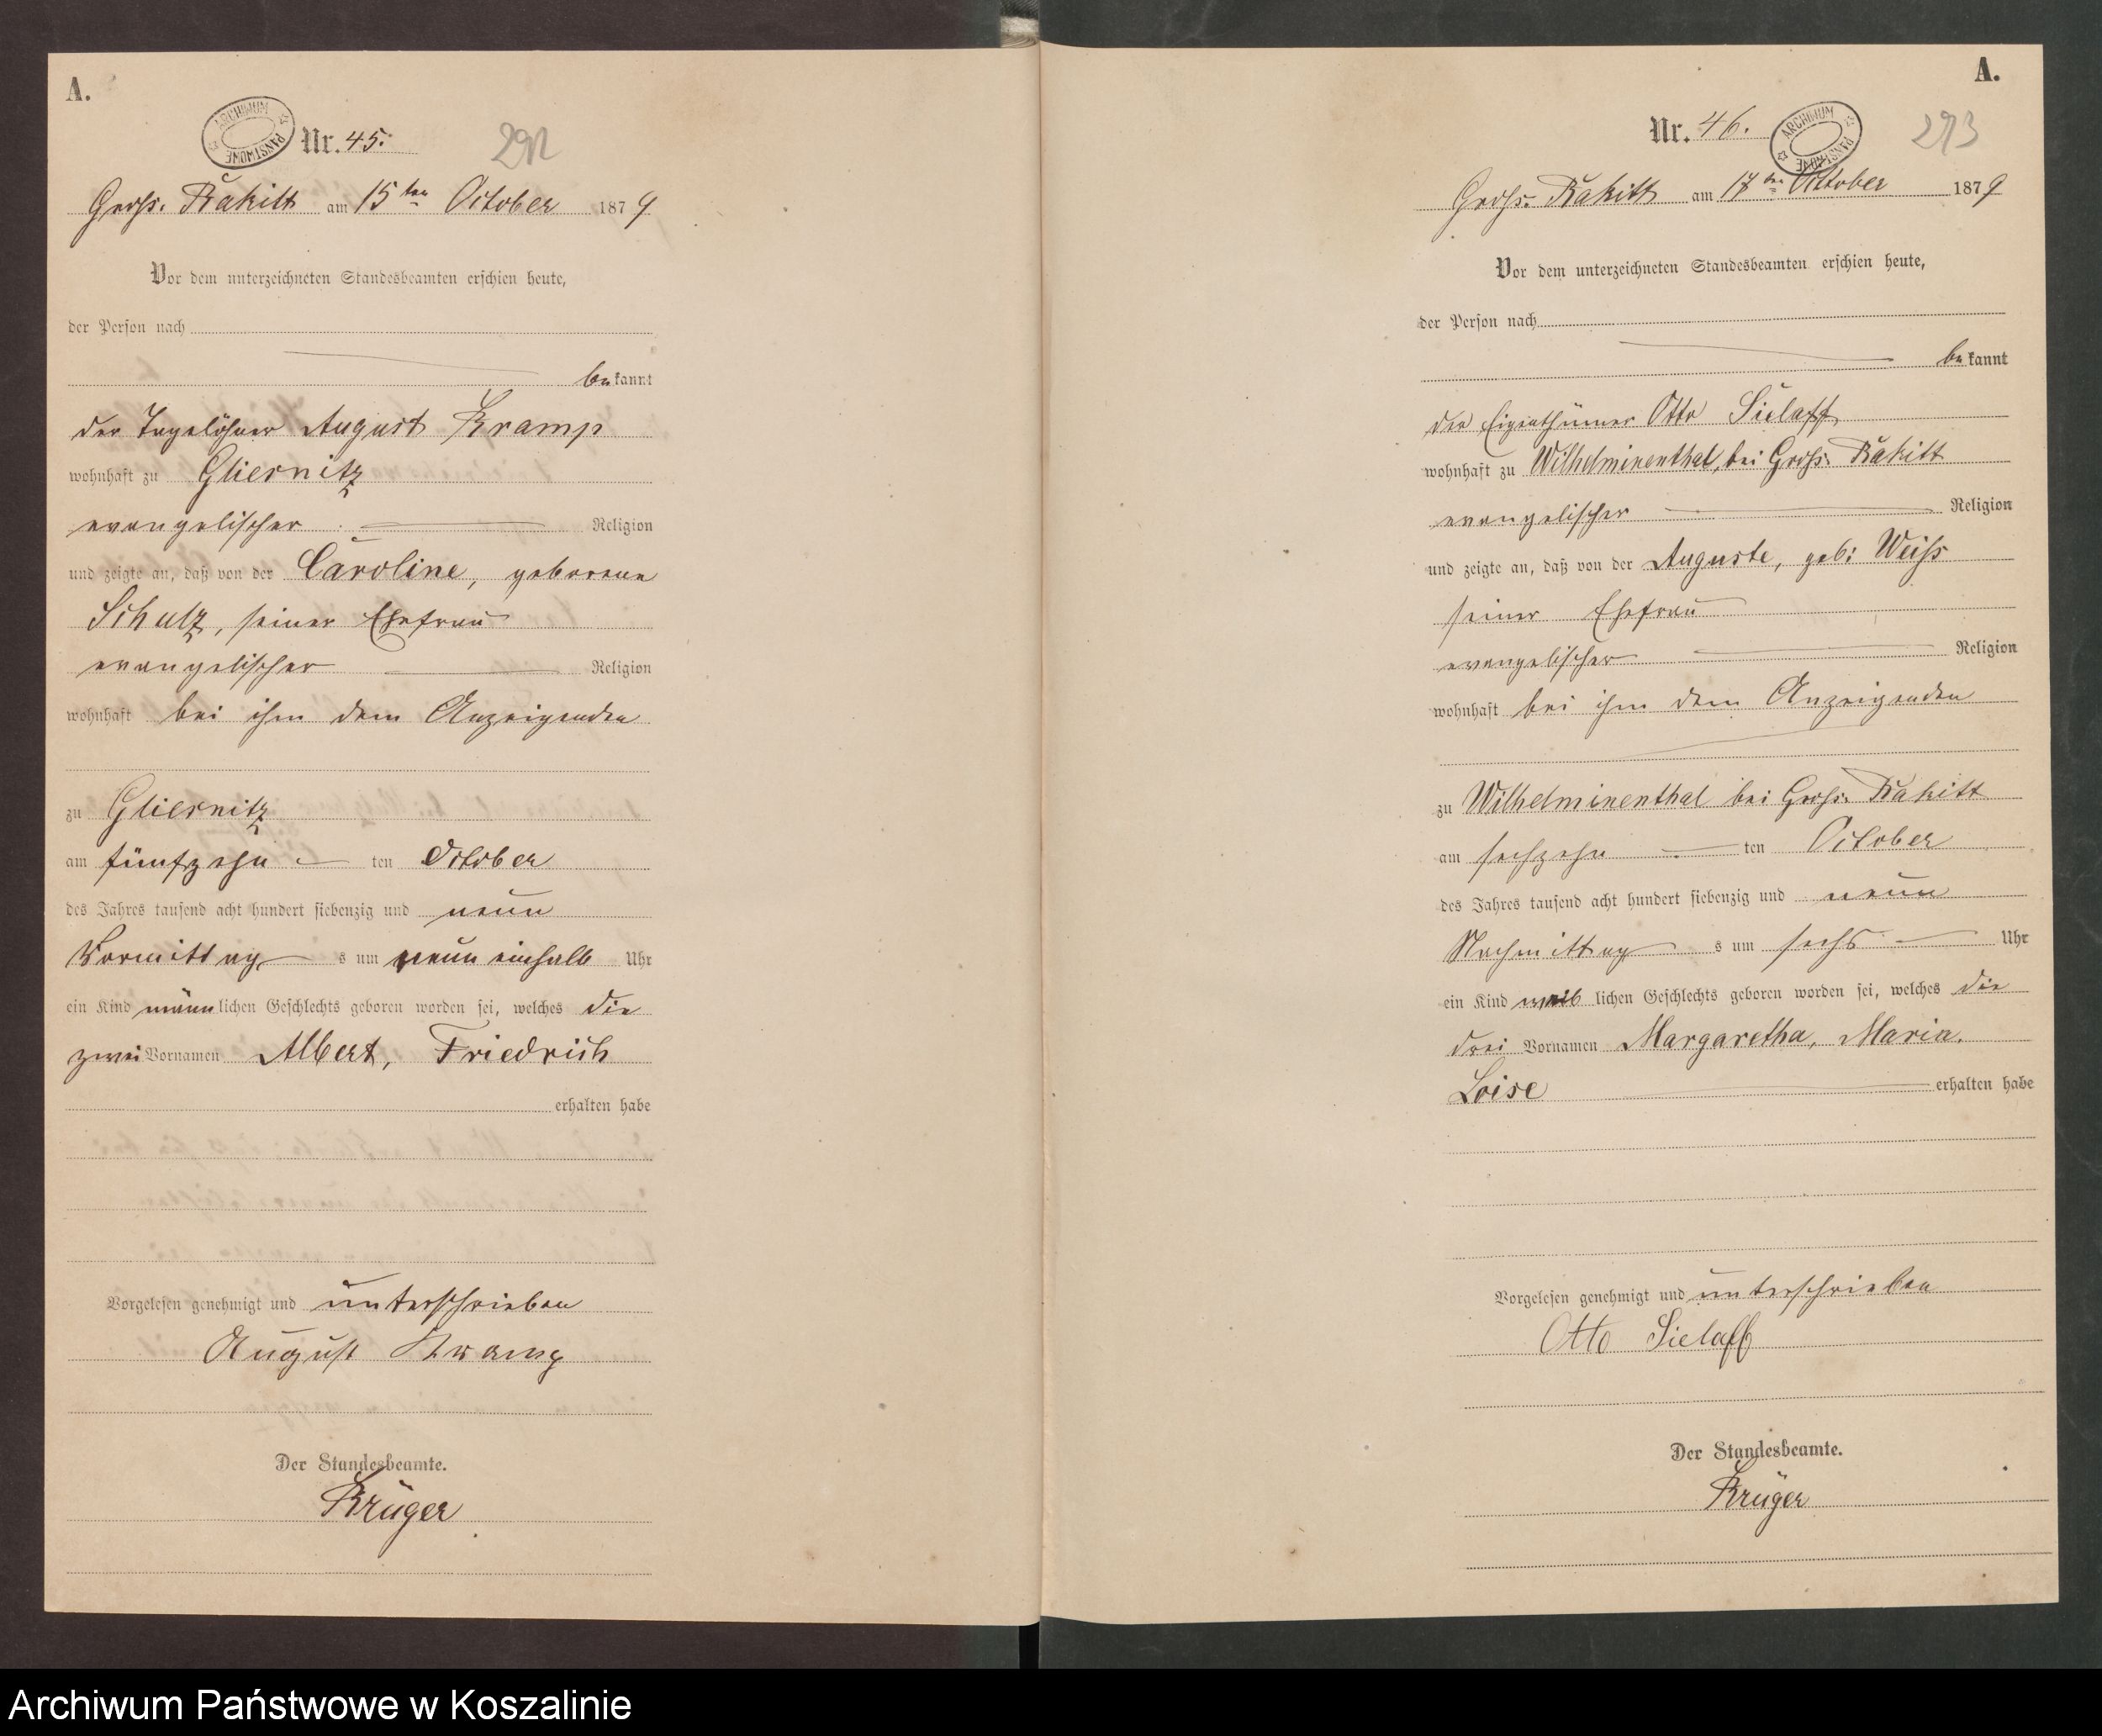 A.
ARCHIWUM PAŃSTWOWE
Nr. 45.
292
Gross. Rakitt am 15ten October 1879
Vor dem unterzeichneten Standesbeamten erschien heute,
der Person nach
bekannt
der Tagelöhner August Kramp
wohnhaft zu Gliesnitz
evangelischer Religion
und zeigte an, daß von der Caroline, geborene
Schulz, seiner Ehefrau
evangelischer Religion
wohnhaft bei ihm dem Anzeigenden
zu Gliesnitz
am fünfzehn ten October
des Jahres tausend acht hundert siebenzig und neun
Vormittag s um neun einhalb Uhr
ein Kind männlichen Geschlechts geboren worden sei, welches die
zwei Vornamen Albert, Friedrich
erhalten habe
Vorgelesen genehmigt und unterschrieben
August Kramp
Der Standesbeamte.
Krüger
A.
Nr. 46.
ARCHIWUM PAŃSTWOWE
293
Gross. Rakitt am 17ten October 1879
Vor dem unterzeichneten Standesbeamten erschien heute,
der Person nach
bekannt
der Eigenthümer Otto Sielaff,
wohnhaft zu Wilhelminenthal, bei Gross. Rakitt
evangelischer Religion
und zeigte an, daß von der Auguste, geb: Weiss
seiner Ehefrau
evangelischer Religion
wohnhaft bei ihm dem Anzeigenden
zu Wilhelminenthal bei Gross. Rakitt
am sechzehn ten October
des Jahres tausend acht hundert siebenzig und neun
Nachmittag s um sechs Uhr
ein Kind weiblichen Geschlechts geboren worden sei, welches die
drei Vornamen Margaretha, Maria.
Loise erhalten habe
Vorgelesen genehmigt und unterschrieben
Otto Sielaff
Der Standesbeamte.
Krüger
Archiwum Państwowe w Koszalinie